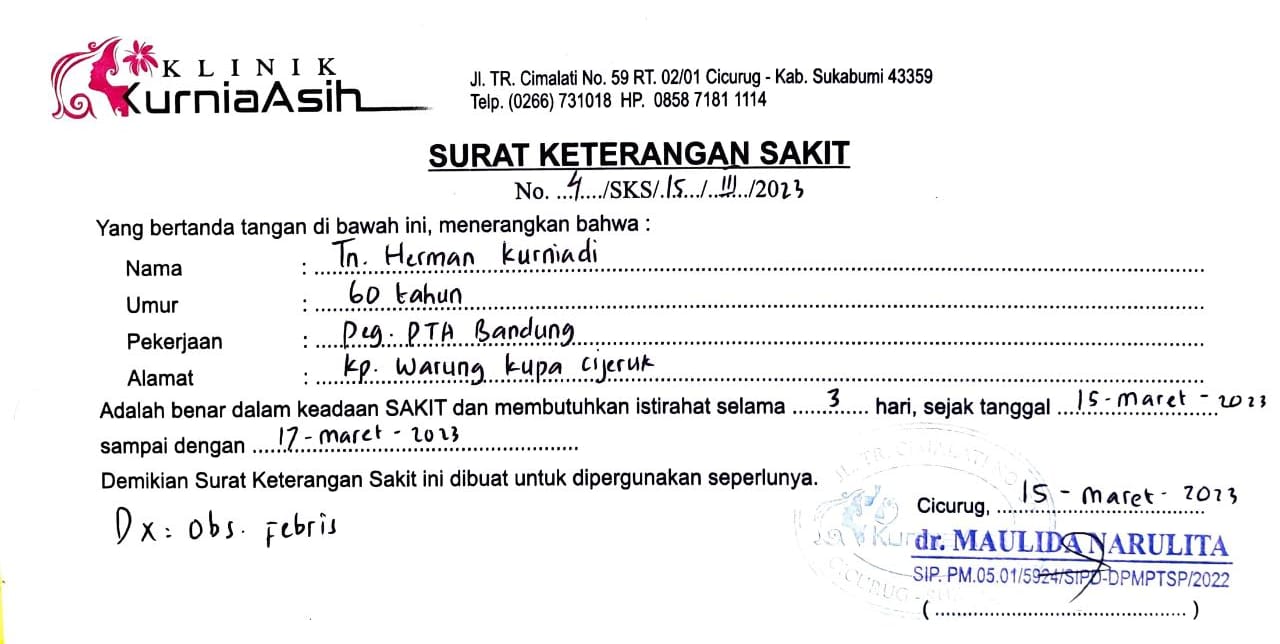 KLINIK
KurniaAsih
Jl. TR. Cimalati No. 59 RT. 02/01 Cicurug - Kab. Sukabumi 43359
Telp. (0266) 731018 HP. 0858 7181 1114
SURAT KETERANGAN SAKIT
No. ...4..../SKS/.15.../..III../2023
Yang bertanda tangan di bawah ini, menerangkan bahwa :
Nama : Tn. Herman Kurniadi
Umur : 60 tahun
Pekerjaan : Peg. PTA Bandung
Alamat : kp. Warung kupa cijeruk
Adalah benar dalam keadaan SAKIT dan membutuhkan istirahat selama ......3...... hari, sejak tanggal ...15-maret-2023
sampai dengan ....17-maret-2023
Demikian Surat Keterangan Sakit ini dibuat untuk dipergunakan seperlunya.
Dx: obs. Febris
Cicurug, ...15-maret-2023
JL. TR. CIMALATI NO
Kur
CICURUG
dr. MAULIDA NARULITA
SIP. PM.05.01/5924/SIPD-DPMPTSP/2022
(............................................)